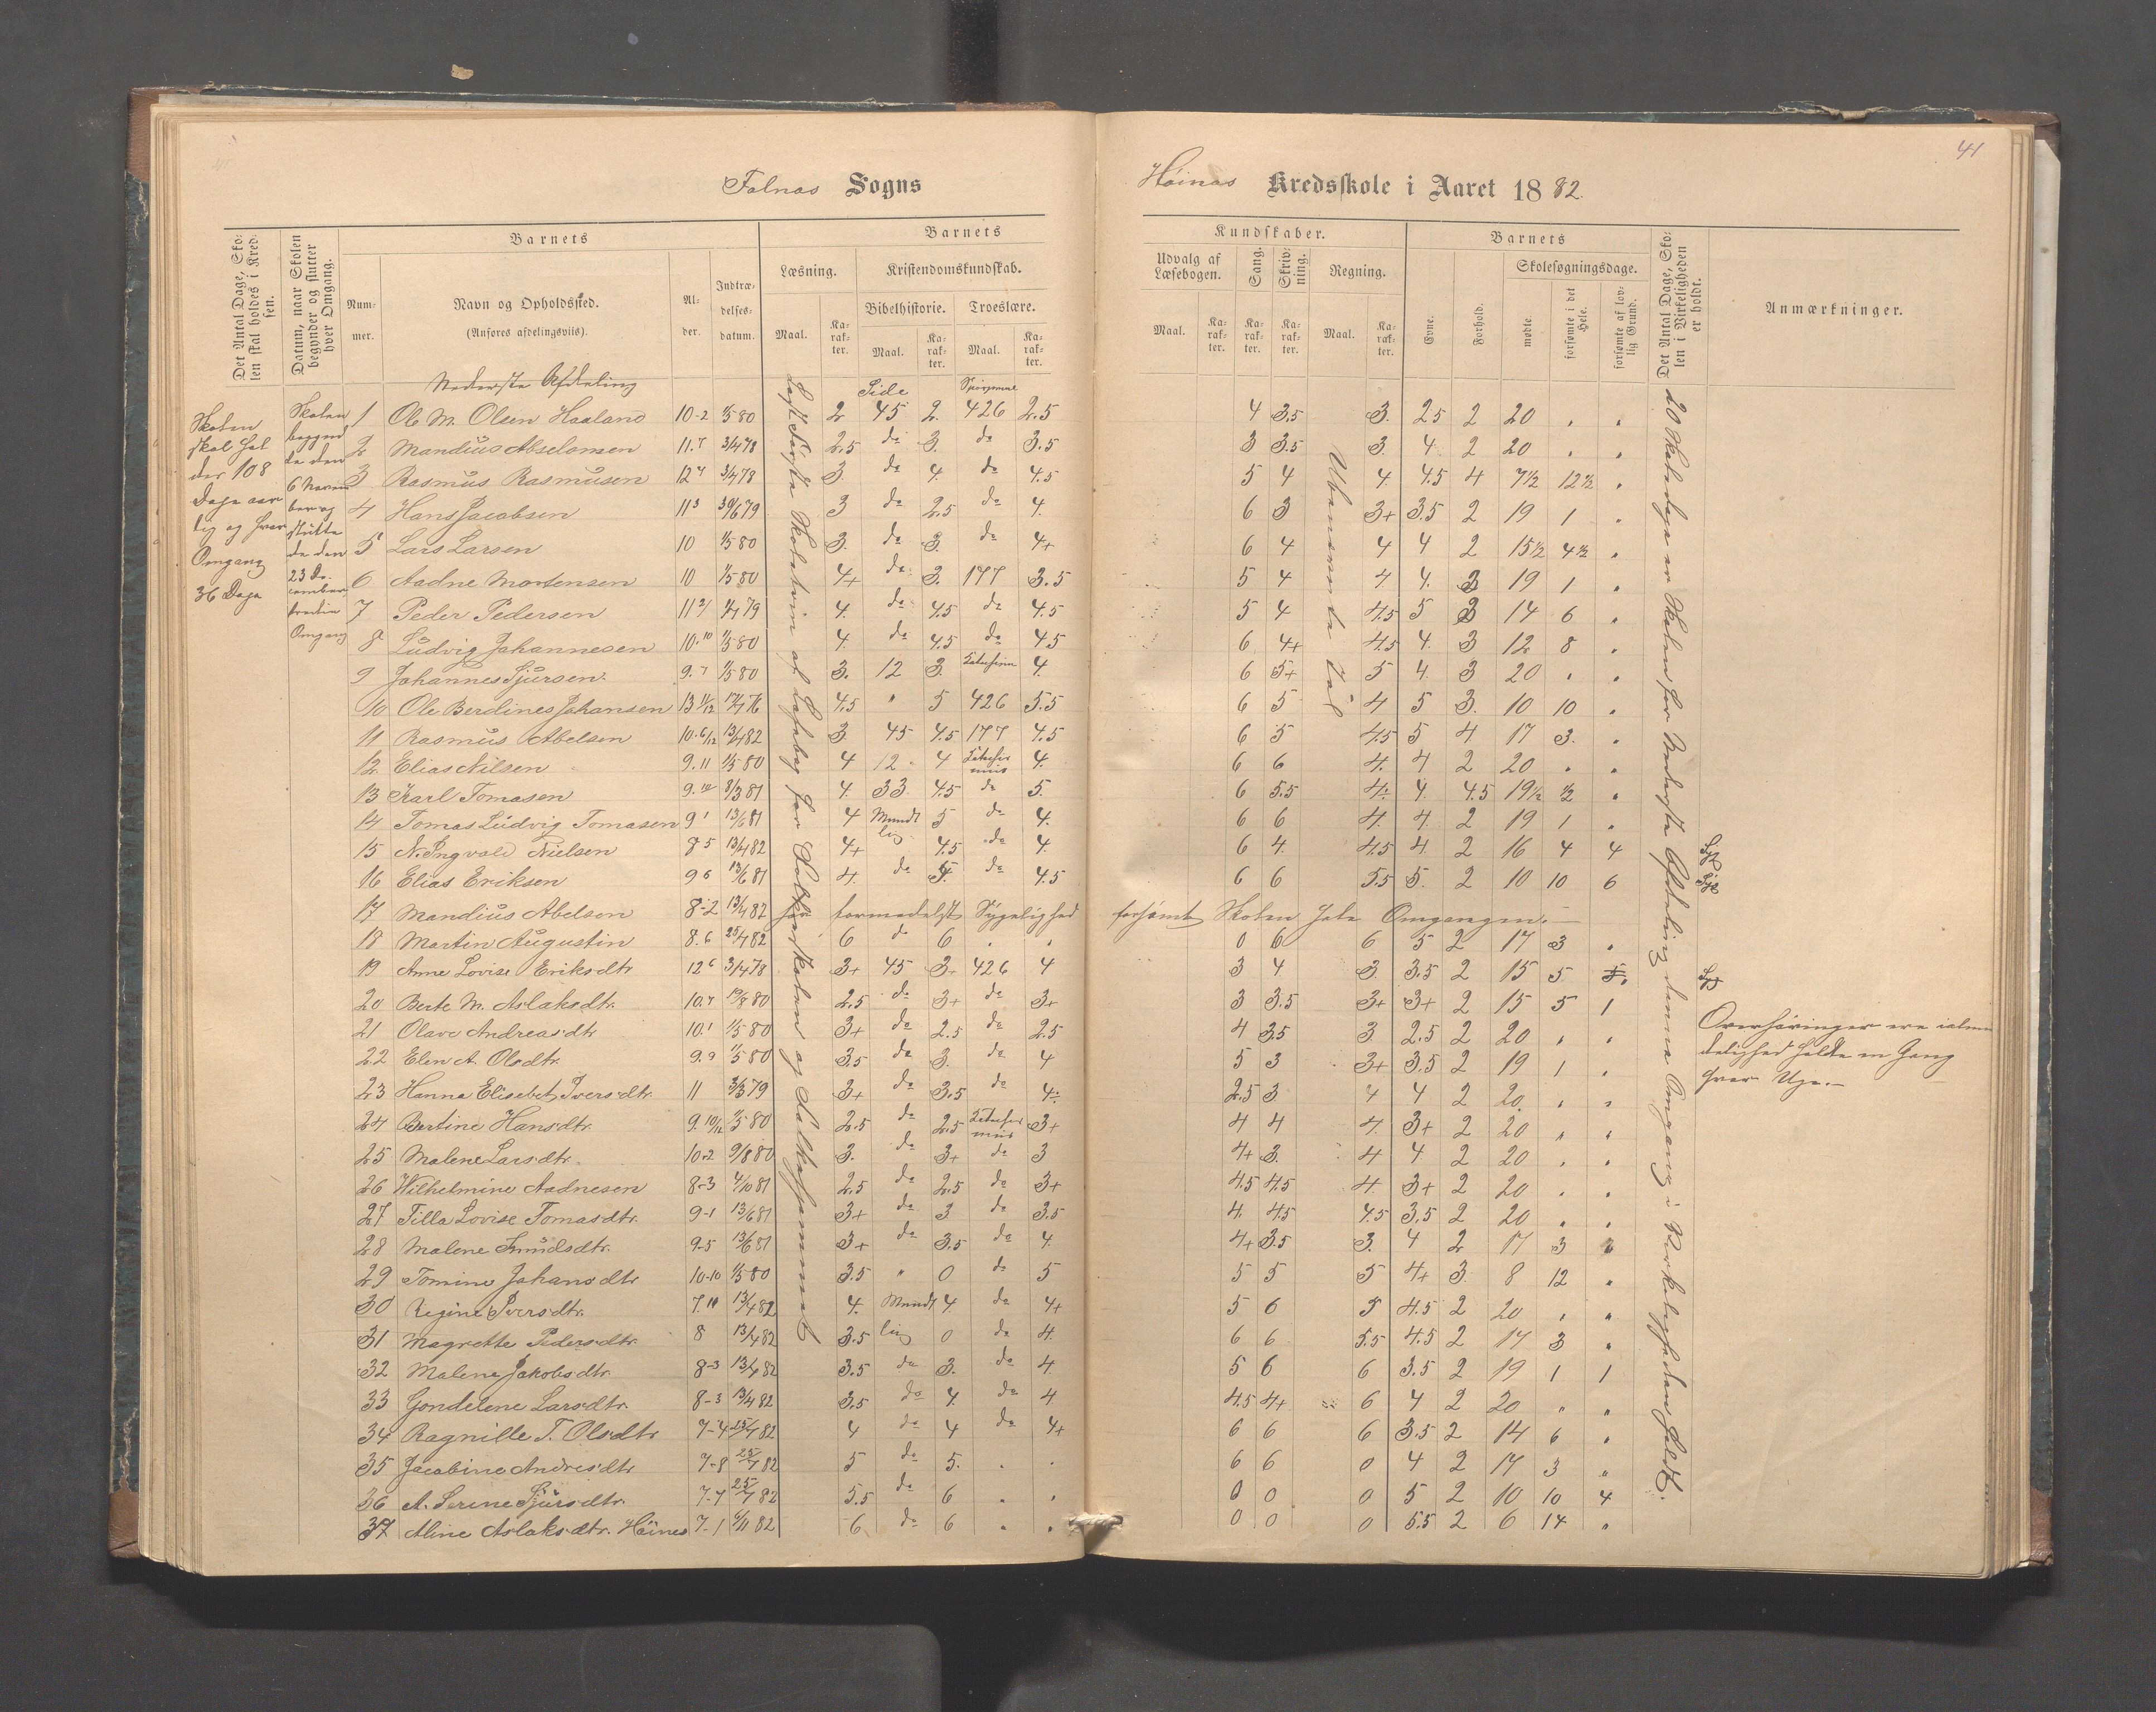 41
Falnas Sogns
Høinas Kredsskole i Aaret 1882.
Det Antal Dage, Skolen skal holdes i Kredsen.
Datum, naar Skolen begynder og slutter hver Omgang.
Barnets
Nummer.
Navn og Opholdssted.
(Anføres afdelingsviis).
Alder.
Indtrædelsesdatum.
Barnets
Læsning.
Maal.
Karakter.
Kristendomskundskab.
Bibelhistorie.
Troeslære.
Maal.
Karakter.
Maal.
Karakter.
Kundskaber.
Udvalg af Læsebogen.
Maal.
Karakter.
Sang.
Karakter.
Skrivning.
Karakter.
Regning.
Maal.
Karakter.
Barnets
Evne.
Forhold.
Skolesøgningsdage.
mødte.
forsømte i det Hele.
forsømte af lovlig Grund.
Det Antal Dage, Skolen i Virkeligheden er holdt.
Anmærkninger.
Skolen
skal hol
des 108
Dage aar
lig og hver
Omgang
36 Dage
Skolen
begynd
te den
6 Novem
ber og
slutte
de den
23 De
cember
tredie
Omgang
Nederste Afdeling
Side
Spørgsmaal
1 Ole M. Olsen Haaland 10-2 1/5 80 2 45 2 426 2.5 4 3.5 3. 2.5 2 20 " "
2 Mandius Abselonsen 11.7 3/4 78 2.5 do 3. do 3.5 3 3.5 3. 4. 2 20 " "
3 Rasmus Rasmusen 12 7 3/4 78 3. do 4. do 4.5 5 4 4. 4.5 4 7½ 12½ "
4 Hans Jacobsen 11 3 30/6 79 3 do 2.5 do 4. 6 3 3+ 3.5 2 19 1 "
5 Lars Larsen 10 1/5 80 3. do 3. do 4+ 6 4 4 4 2 15½ 4½ "
6 Aadne Mortensen 10 1/5 80 4+ do 3. 177 3.5 5 4 4. 4. 3 19 1 "
7 Peder Pedersen 4. do 4.5 do 4.5 5 4 4.5 5 3 14 6 "
8 Ludvig Johannesen 10.10 1/5 80 4. do 4.5 do 4.5 6 4+ 4.5 4. 3 12 8 "
9 Johannes Sjursen. 9.7 1/5 80 3. 12 3. 4. 6 5+ 5 4. 3 20 " "
10 Ole Berdines Johansen 13 11/12 4.5 " 5 426 5.5 6 5 4 5 3. 10 10 "
11 Rasmus Abelsen 10.6/12 13/4 82 3 45 4.5 177 4.5 6 5 4.5 5 4 17 3. "
12 Elias Nilsen 9.11 1/5 80 4 12 " 4 4. 6 6 4. 4 2 20 " "
13 Karl Tomasen 9.10 3/3 81 4. 33 4.5 do 5. 6 5.5 4. 4.5 19½ ½ "
14 Tomas Ludvig Tomasen 9 1 13/6 81 4 Mundtlig 5 do 4. 6 6 4. 4. 2 19 1 "
15 N. Ingvald Nielsen 8 5 13/4 82 4+ 4.5 do 4. 6 4. 4.5 4. 2 16 4 4 Syg
16 Elias Eriksen 9 6 13/6 81 4. do do 4.5 6 6 5.5 5. 2 10 10 6 Syg
17 Mandius Abelsen 8-2 13/4 82 har formedelst Sygelighed forsømt Skolen hele Omgangen.
18 Martin Augustin 8.6 25/4 82 6 do 6 " " 0 6 6 5 2 17 3 "
19 Anne Lovise Eriksdtr 12 6 3/4 78 3+ 45 3. 426 4 3 4 3. 3.5 2 15 5 5. Syg
20 Berte M. Aslaksdtr. 10.7 19/8 80 2.5 do 3+ do 3+ 3 3.5 3+ 3+ 2 15 5 1
21 Olave Andreasdtr 10.1 1/5 80 3+ do 2.5 do 2.5 4 3.5 3 2.5 2 20 " "
22 Elen A. Olsdtr. 9.9 1/5 80 3.5 do 3. do 4 5 3 3+ 3.5 2 19 1 "
23 Hanna Elisebet Iversdtr. 11 3/3 79 3+ do 3.5 do 2.5 3 4 4 2 20. " "
24 Bertine Hansdtr. 9.10/12 1/5 80 2.5 do 2.5 3+ 4 4 4. 3+ 2 20 " "
25 Malene Larsdtr. 10-2 9/8 80 3. do 3+ do 3 4+ 3. 4 4 2 20 " "
26 Wilhelmine Aadnesen 8-3 4/10 81 2.5 do 2.5 do 3+ 4.5 4.5 4. 3+ 2 20 " "
27 Tilla Lovise Tomasdtr. 9-1 13/6 81 3+ do 3 do 3.5 4. 4.5 4.5 3.5 2 20 " "
28 Malene Knudsdtr. 9-5 13/6 81 3+ do 3.5 do 4. 4+ 3.5 3. 4 2 17 3
29 Tomine Johansdtr 10-10 1/5 80 3.5 " 0 do 5 5 5 5 4+ 3 8 12 "
30 Regine Iversdtr. 7.10 13/4 82 4. Mundtlig 4. do 4+ 5 6 5 4.5 2 20 " "
31 Magrette Pedersdtr. 8 13/4 82 3.5 0 do 4. 6 6 5.5 4.5 2 17 3 "
32 Malene Jakobsdtr. 8-3 13/4 82 3.5 do 3. do 4 5 6 6 3.5 2 19 1 1
33 Gonderene Larsdtr. 8-3 13/4 82 3.5 do 4. do 4 4.5 4+ 6 4 2 20 " "
34 Ragnille T. Olsdtr 7-4 25/4 82 4 do 4 do 4+ 6 6 6 3.5 2 14 6 "
35 Jacobine Andresdtr 7-8 25/7 82 5 do 5. " " 6 6 0 4 2 17 3 "
36 A. Serine Sjursdtr. 7-7 25/7 82 5.5 do 6 " " 0 0 0 5 2 10 10 4
37 Aline Aslaksdtr. Høines 7-1 6/11 82 6 do 6 " " 0 0 0 5.5 2 6 14 "
Lest første Skoletrin af Læsebog for Folkeskolen og Folkehjemmet
Ubenævnte Tal
20 Skoledage er Skolen for Nederste Afdeling denne Omgang i Virkeligheden holdt.
Overhøringer ere i almin
delighed holdte en Gang
hver Uge.